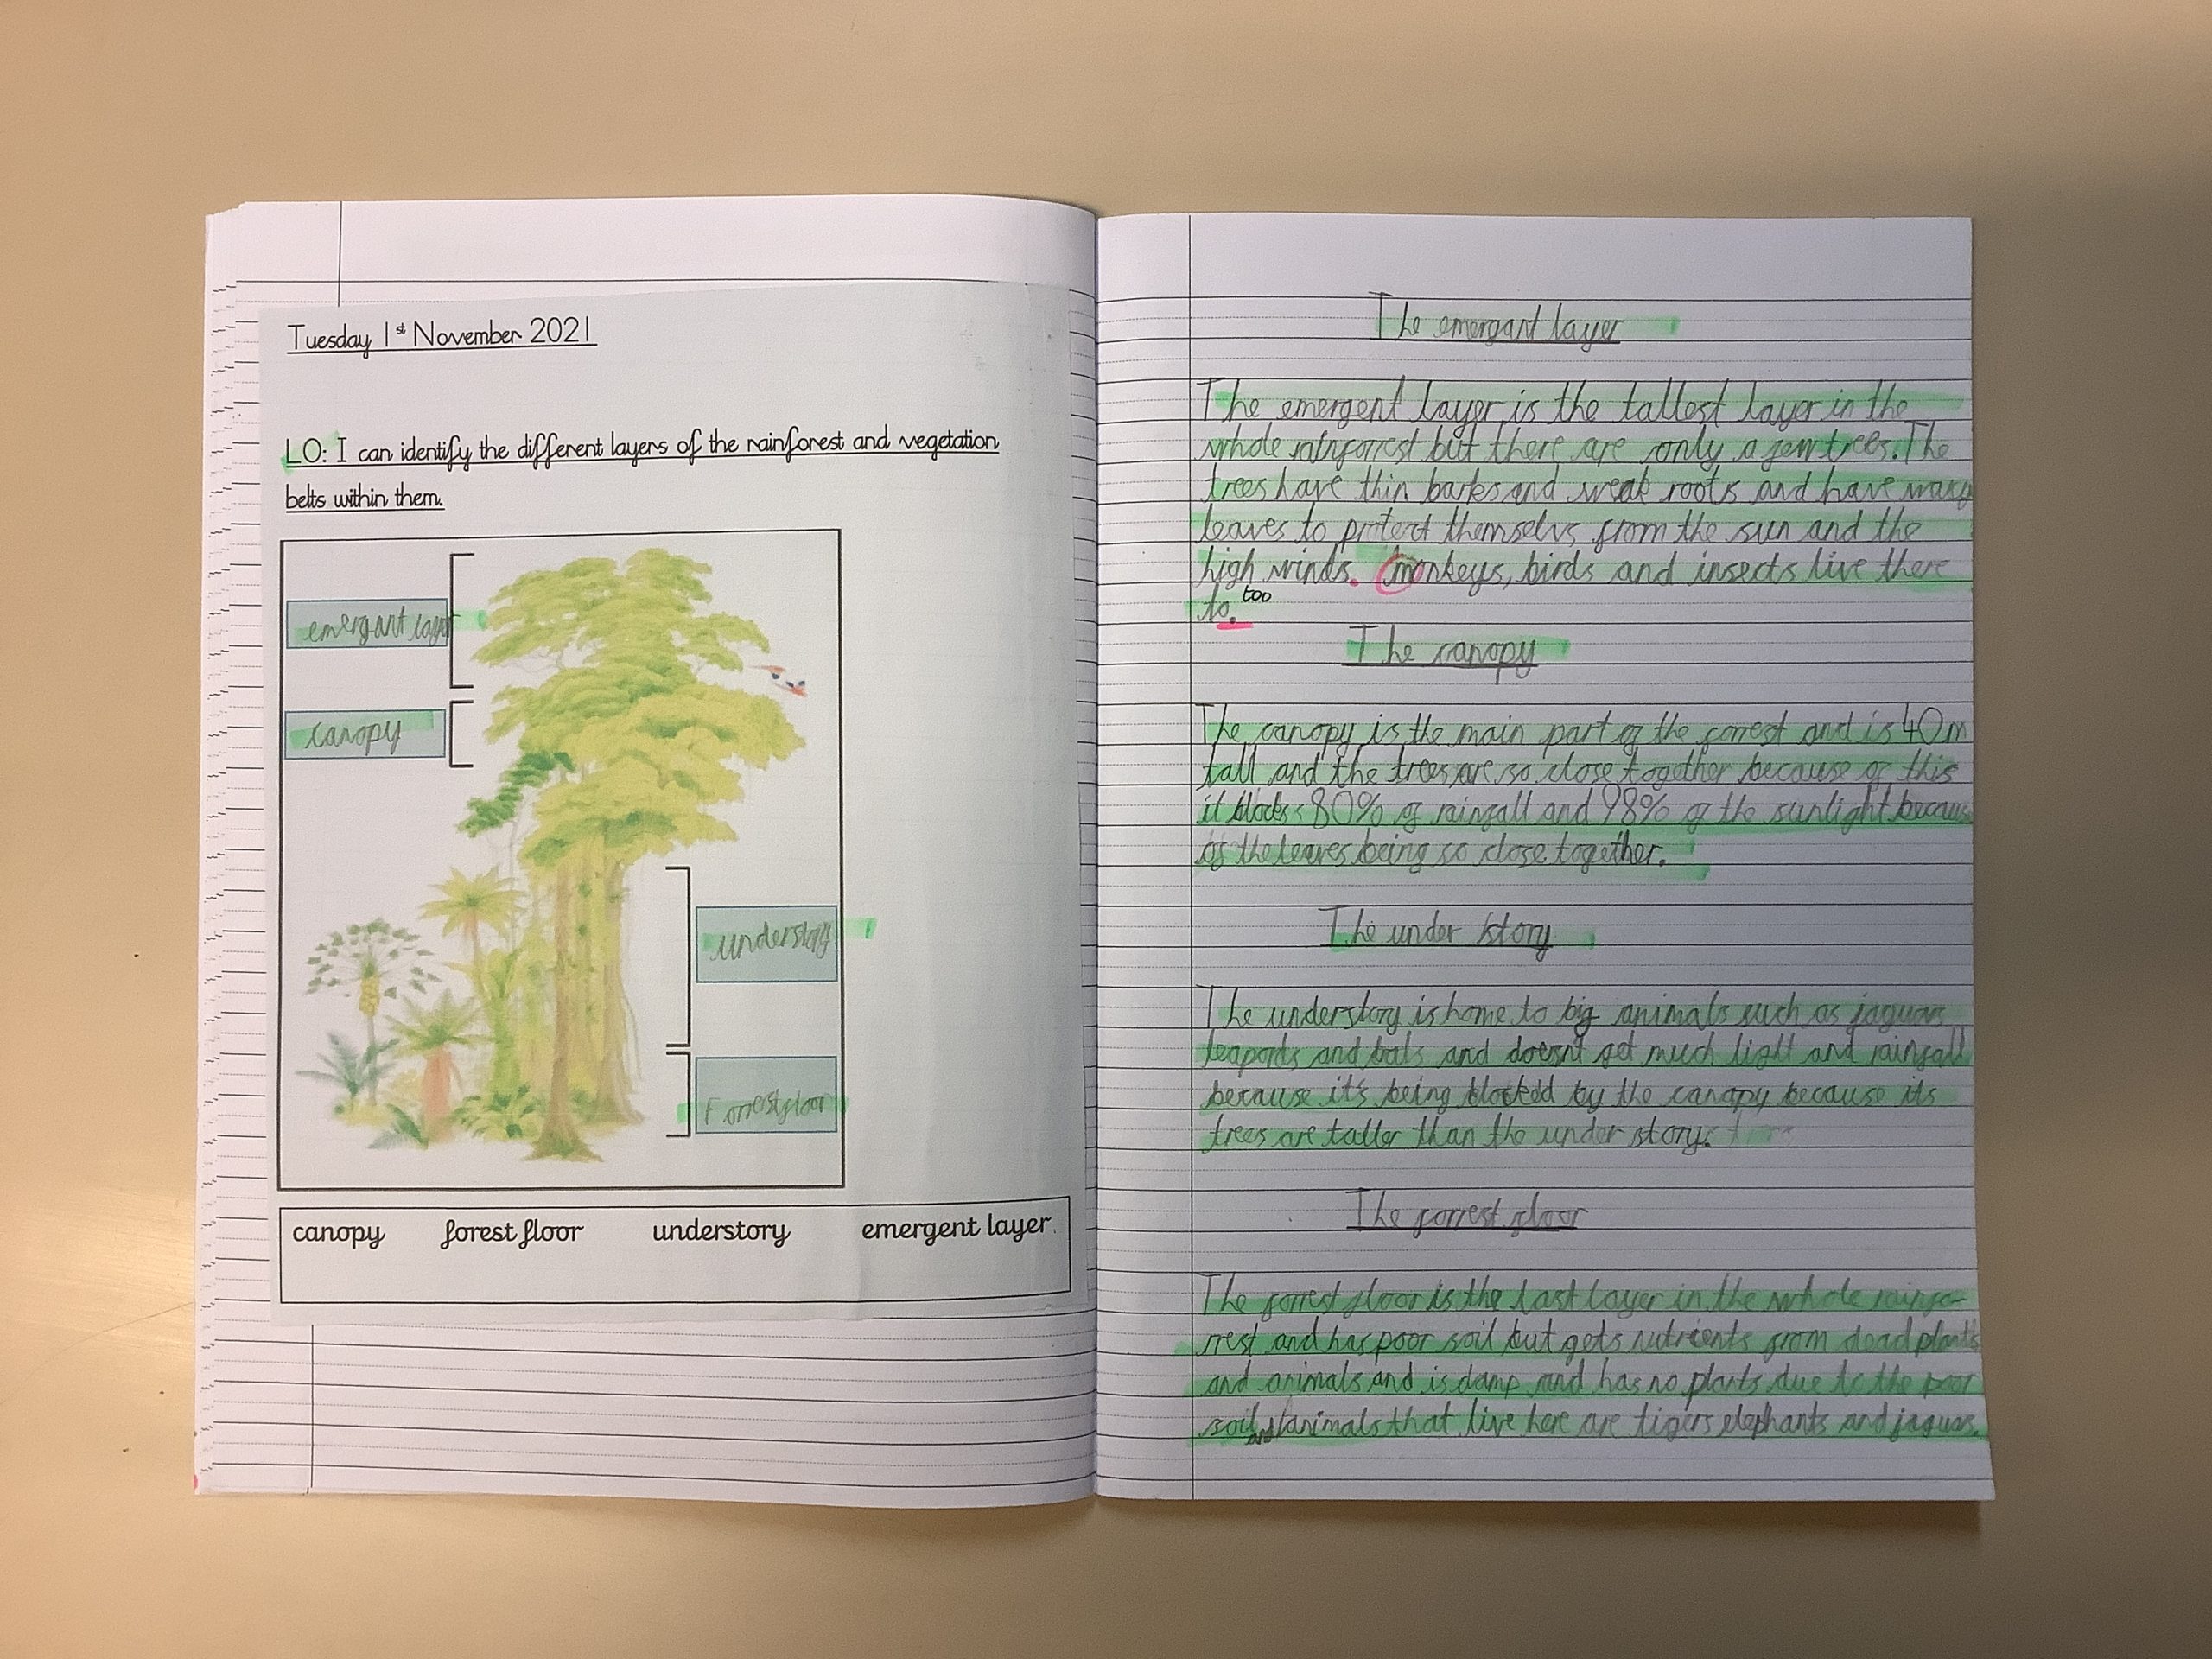 Tuesday 1st November 2021
LO: I can identify the different layers of the rainforest and vegetation
belts within them.
emergant layer
canopy
understory
Forrest floor
canopy forest floor understory emergent layer.
The emergant layer
The emergent layer is the tallest layer in the
whole rainforrest but there are only a few trees. The
trees have thin barks and weak roots and have many
leaves to protect themselvs from the sun and the
high winds. monkeys, birds and insects live there
to. too
The canopy
The canopy is the main part of the forrest and is 40m
tall and the trees are so close together because of this
it blocks 80% of rainfall and 98% of the sunlight because
of the leaves being so close together.
The under story
The understory is home to big animals such as jaguars
leapords and bats and doesnt get much light and rainfall
because it's being blocked by the canopy because its
trees are taller than the under story.
The forrest floor
The forrest floor is the last layer in the whole rainfo-
rrest and has poor soil but gets nutrients from dead plants
and animals and is damp and has no plants due to the poor
soil and animals that live here are tigers elephants and jaguars.